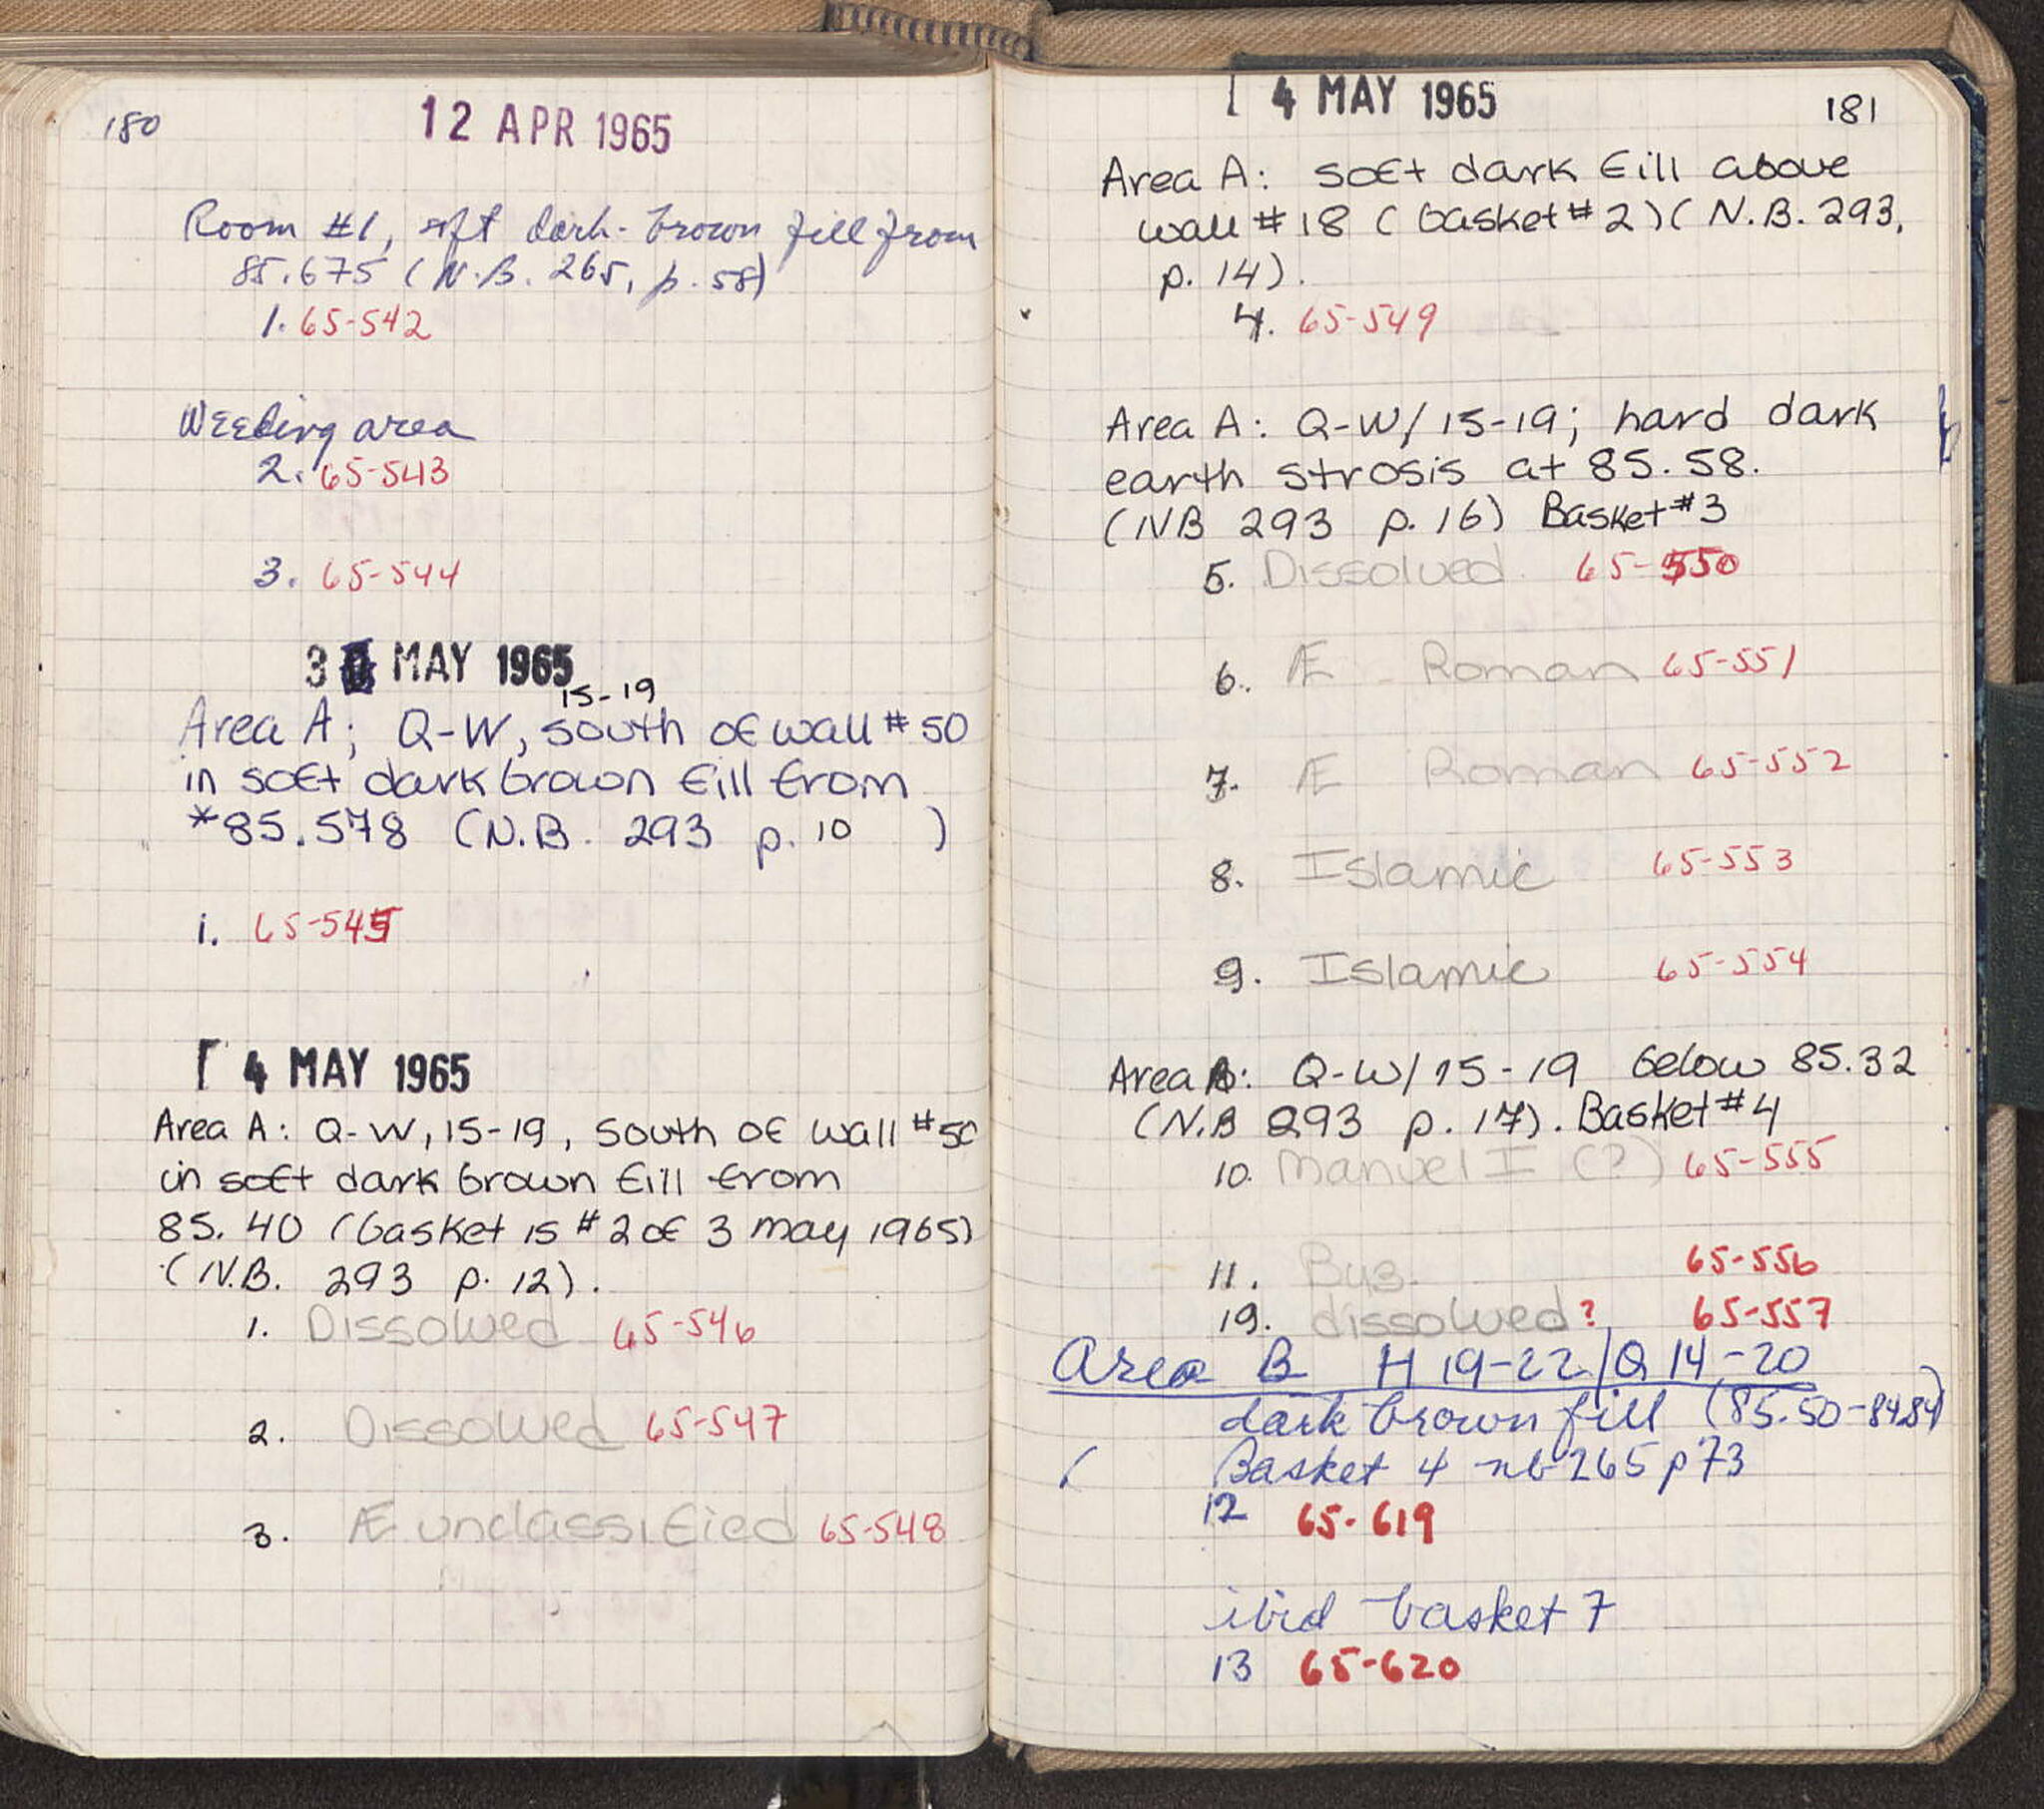 180
12 APR 1965
Room #1, soft dark-brown fill from
85.675 (N.B. 265, p. 58)
1. 65-542
Weeding area
2. 65-543
3. 65-544
3 MAY 1965
15-19
Area A; Q-W, south of wall #50
in soft dark brown fill from
*85.578 (N.B. 293 p. 10 )
1. 65-545
4 MAY 1965
Area A: Q-W, 15-19, South of wall #50
in soft dark brown fill from
85.40 (basket is #2 of 3 may 1965)
(N.B. 293 p. 12).
1. Dissolved 65-546
2. Dissolved 65-547
3. Æ unclassified 65-548
4 MAY 1965
181
Area A: soft dark fill above
wall #18 (basket #2) (N.B. 293,
p. 14).
4. 65-549
Area A: Q-W/15-19; hard dark
earth strosis at 85.58.
(NB 293 p. 16) Basket #3
5. Dissolved 65-550
6. Æ Roman 65-551
7. Æ Roman 65-552
8. Islamic 65-553
9. Islamic 65-554
Area A: Q-W/15-19 below 85.32
(N.B 293 p. 17). Basket #4
10. Manuel I (?) 65-555
11. Byz. 65-556
19. dissolved? 65-557
Area B H 19-22/Q 14-20
dark brown fill (85.50-84.84)
Basket 4 nb 265 p 73
12 65-619
ibid basket 7
13 65-620